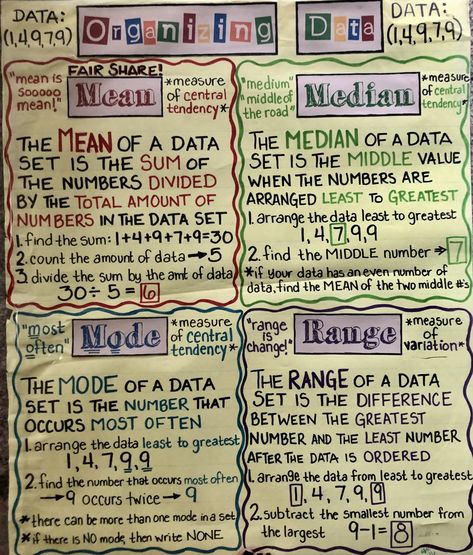 DATA:
(1,4,9,7,9)
Organizing Data
DATA:
(1,4,9,7,9)
FAIR SHARE!
"mean is
sooooo
mean!"
Mean
*measure
of central
tendency*
THE MEAN OF A DATA
SET IS THE SUM OF
THE NUMBERS DIVIDED
BY THE TOTAL AMOUNT OF
NUMBERS IN THE DATA SET
1. find the sum: 1+4+9+7+9=30
2. count the amount of data → 5
3. divide the sum by the amt of data
30 ÷ 5 = 6
"medium"
"middle of
the road"
Median
*measure
of central
tendency*
THE MEDIAN OF A DATA
SET IS THE MIDDLE VALUE
WHEN THE NUMBERS ARE
ARRANGED LEAST TO GREATEST
1. arrange the data least to greatest
1, 4, 7, 9, 9
2. find the MIDDLE number → 7
*if your data has an even number of
data, find the MEAN of the two middle #'s
"most
often"
Mode
*measure
of central
tendency*
THE MODE OF A DATA
SET IS THE NUMBER THAT
OCCURS MOST OFTEN
1. arrange the data least to greatest
1, 4, 7, 9, 9
2. find the number that occurs most often
→ 9 occurs twice → 9
*there can be more than one mode in a set
*if there is NO mode, then write NONE
"range
is
change!"
Range
*measure
of
variation*
THE RANGE OF A DATA
SET IS THE DIFFERENCE
BETWEEN THE GREATEST
NUMBER AND THE LEAST NUMBER
AFTER THE DATA IS ORDERED
1. arrange the data from least to greatest
1, 4, 7, 9, 9
2. subtract the smallest number from
the largest 9-1= 8